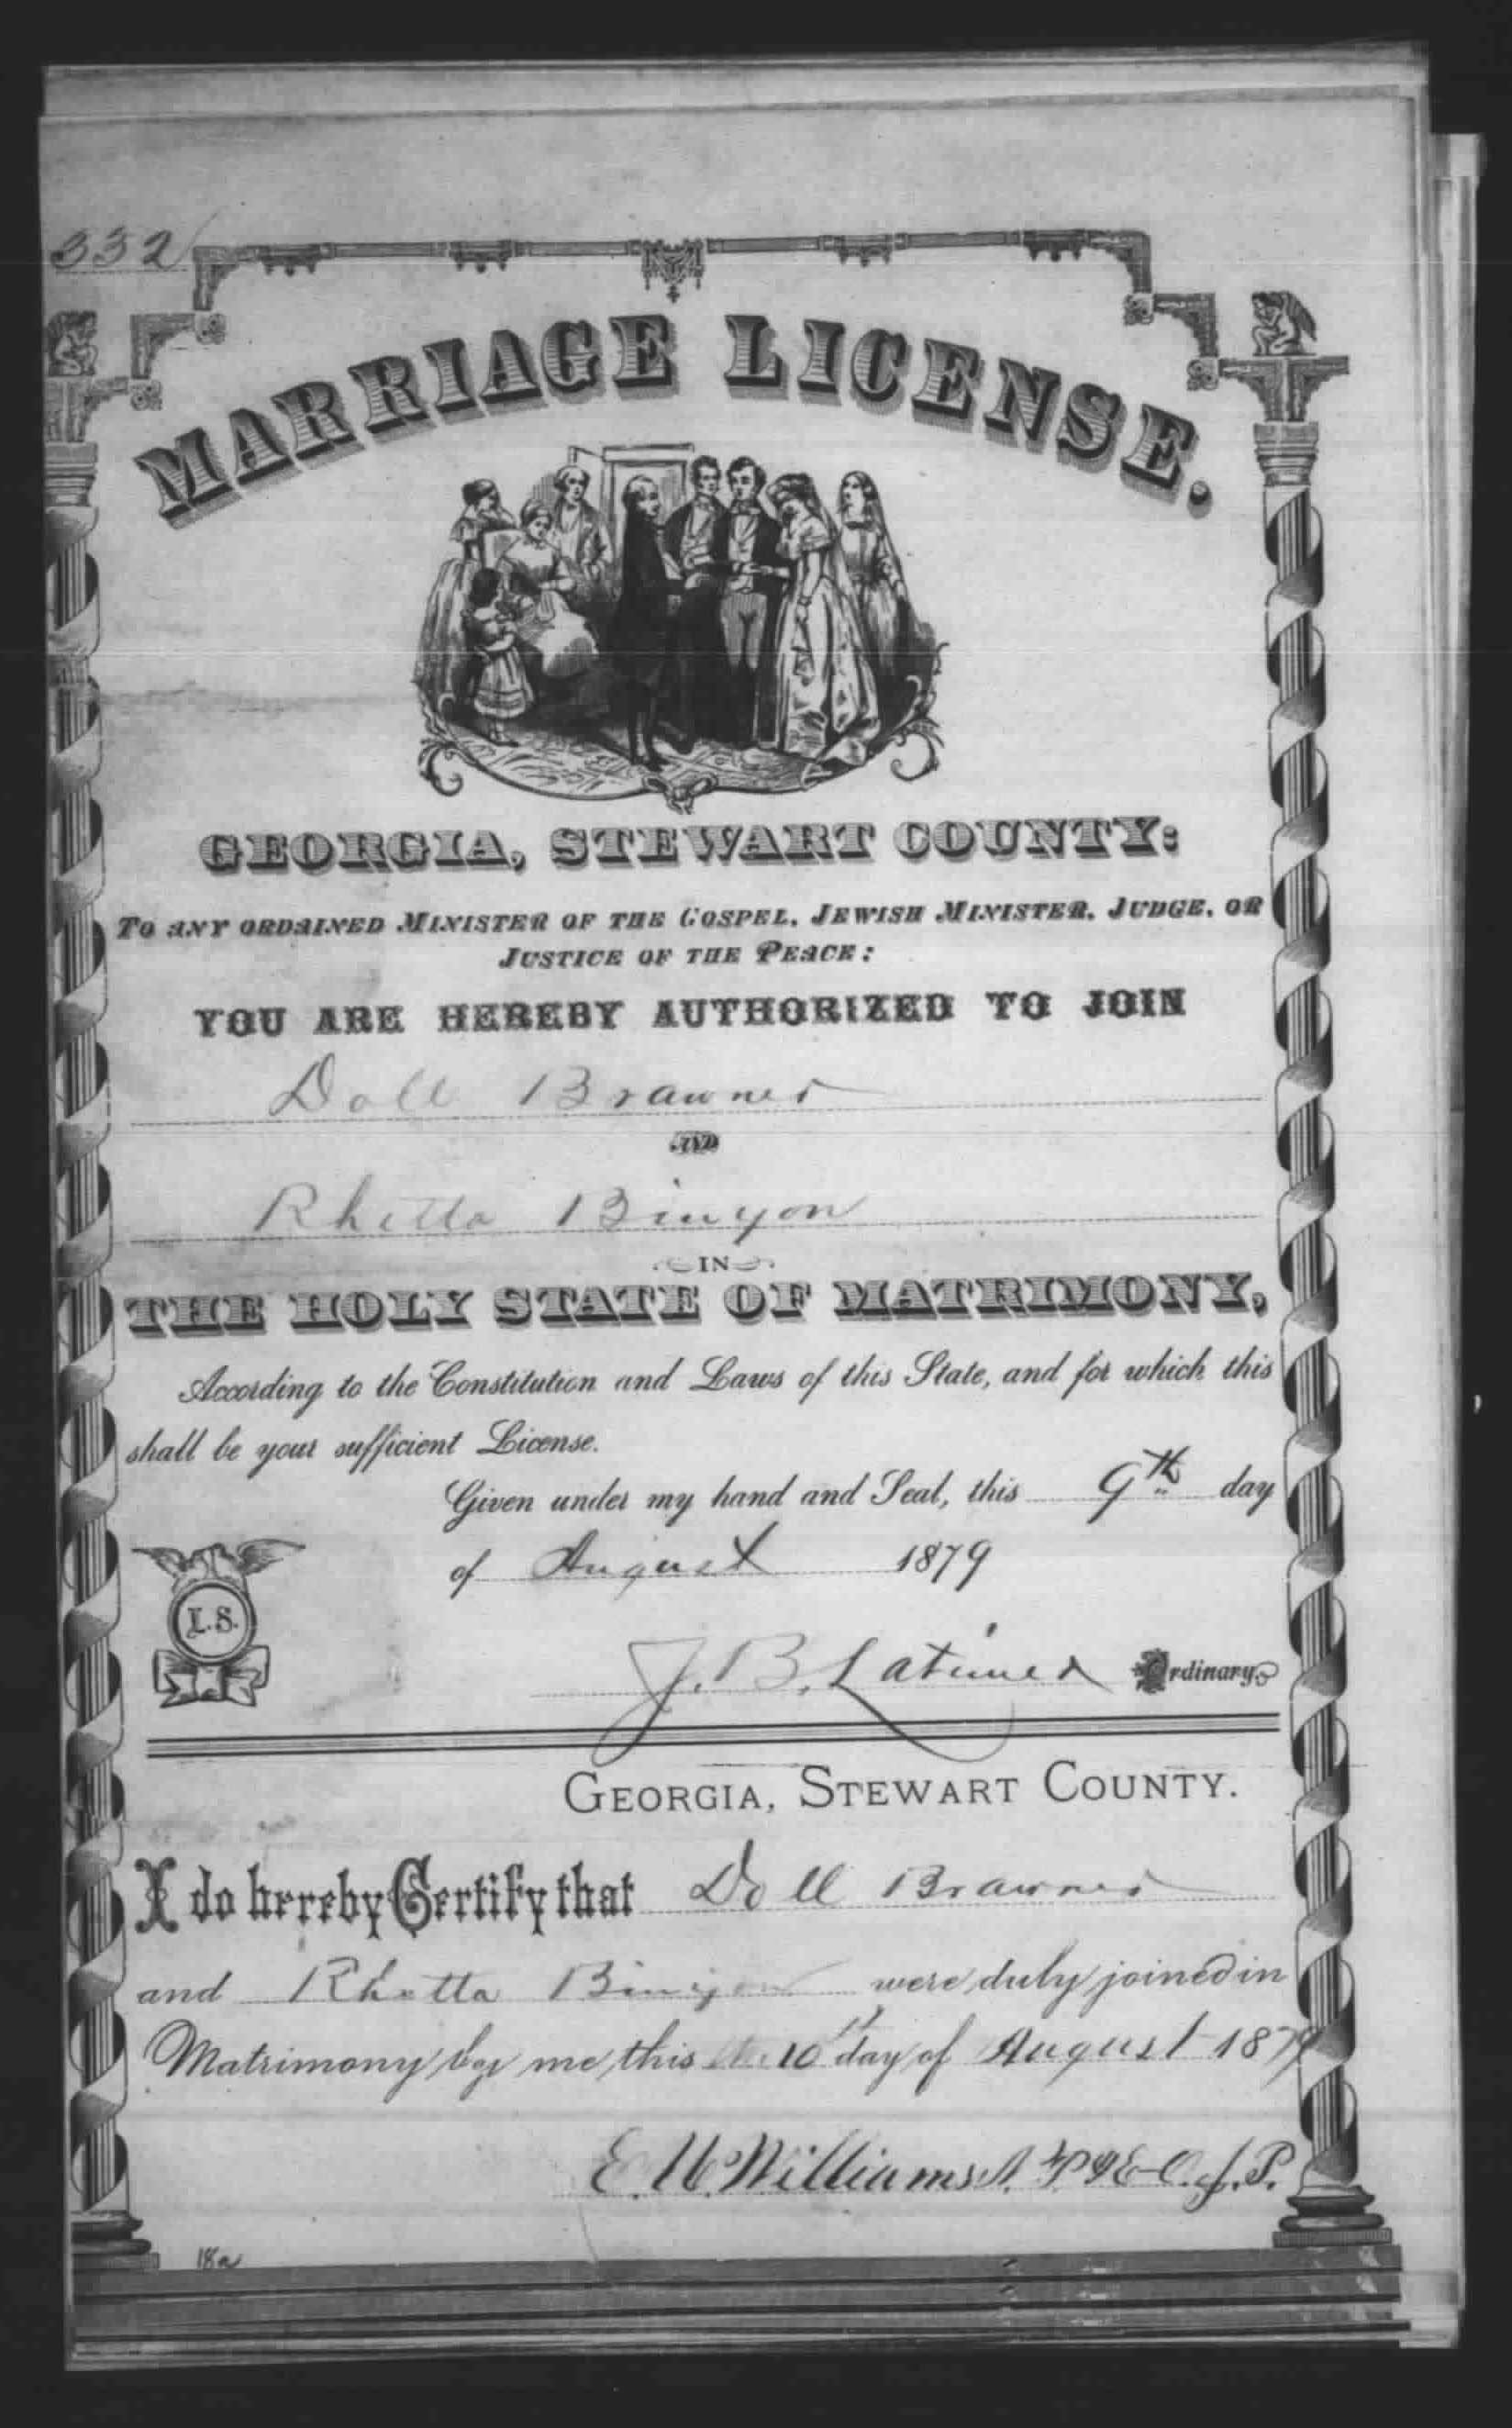 332
MARRIAGE LICENSE.
GEORGIA, STEWART COUNTY:
TO ANY ORDAINED MINISTER OF THE GOSPEL, JEWISH MINISTER, JUDGE, OR
JUSTICE OF THE PEACE:
YOU ARE HEREBY AUTHORIZED TO JOIN
Doll Brawner
AND
Rhetta Binyon
IN
THE HOLY STATE OF MATRIMONY,
According to the Constitution and Laws of this State, and for which this
shall be your sufficient License.
Given under my hand and Seal, this 9th day
of August 1879
L.S.
J. B. Latimer Ordinary
GEORGIA, STEWART COUNTY.
I do hereby Certify that Doll Brawner
and Rhetta Binyon were duly joined in
Matrimony by me, this 10 day of August 1879
E. W. Williams J.P.
18a